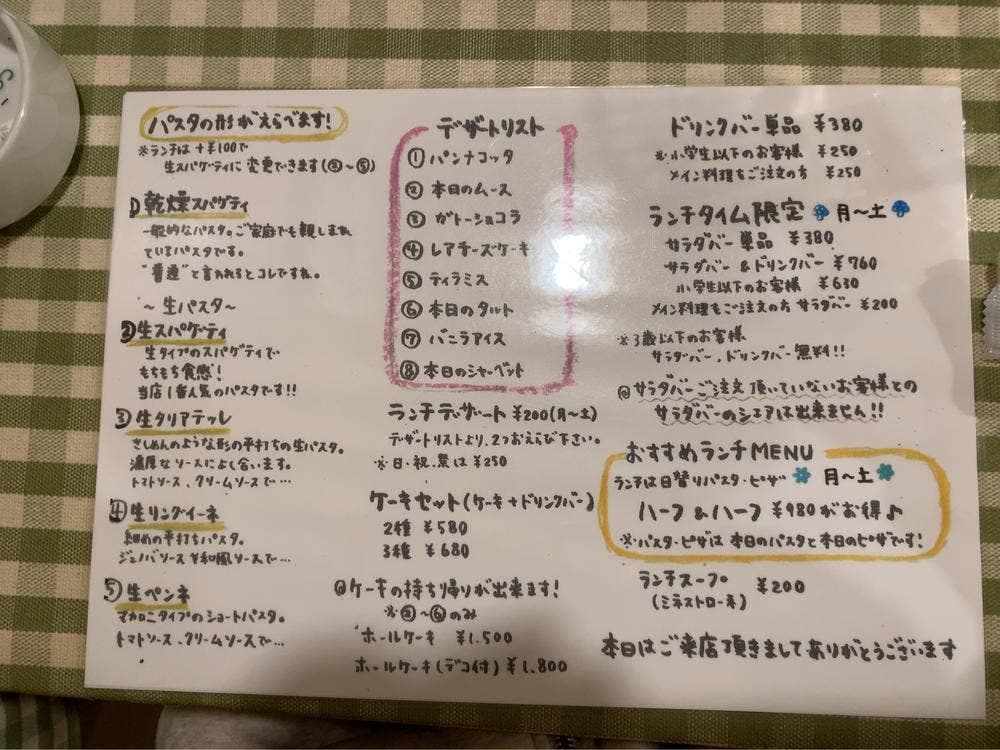 パスタの形がえらべます!
※ランチは +¥100で
生スパゲティに変更できます(②〜⑤)
①乾燥スパゲティ
一般的なパスタ。ご家庭でも親しまれ
ているパスタです。
"普通"と言われるとコレですね。
〜生パスタ〜
②生スパゲティ
生タイプのスパゲティで
もちもち食感!
当店1番人気のパスタです!!
③生タリアテッレ
きしめんのような形の平打ちの生パスタ。
濃厚なソースによく合います。
トマトソース、クリームソースで…
④生リングイーネ
細めの平打ちパスタ。
ジェノバソースや和風ソースで…
⑤生ペンネ
マカロニタイプのショートパスタ。
トマトソース、クリームソースで…
デザートリスト
①パンナコッタ
②本日のムース
③ガトーショコラ
④レアチーズケーキ
⑤ティラミス
⑥本日のタルト
⑦バニラアイス
⑧本日のシャーベット
ランチデザート ¥200(月〜土)
デザートリストより、2つおえらび下さい。
※日・祝祭は ¥250
ケーキセット(ケーキ+ドリンクバー)
2種 ¥580
3種 ¥680
@ケーキの持ち帰りが出来ます!
※②〜⑥のみ
ホールケーキ ¥1,500
ホールケーキ(デコ付) ¥1,800
ドリンクバー単品 ¥380
※小学生以下のお客様 ¥250
メイン料理をご注文の方 ¥250
ランチタイム限定 月〜土
サラダバー 単品 ¥380
サラダバー &ドリンクバー ¥760
小学生以下のお客様 ¥630
メイン料理をご注文の方 サラダバー ¥200
※3歳以下のお客様
サラダバー、ドリンクバー無料!!
@サラダバーご注文頂いていないお客様との
サラダバーのシェアは出来ません!!
おすすめランチMENU
ランチは日替りパスタ・ピザ 月〜土
ハーフ&ハーフ ¥980がお得♪
※パスタ・ピザは 本日のパスタと本日のピザです!
ランチスープ ¥200
(ミネストローネ)
本日はご来店頂きましてありがとうございます